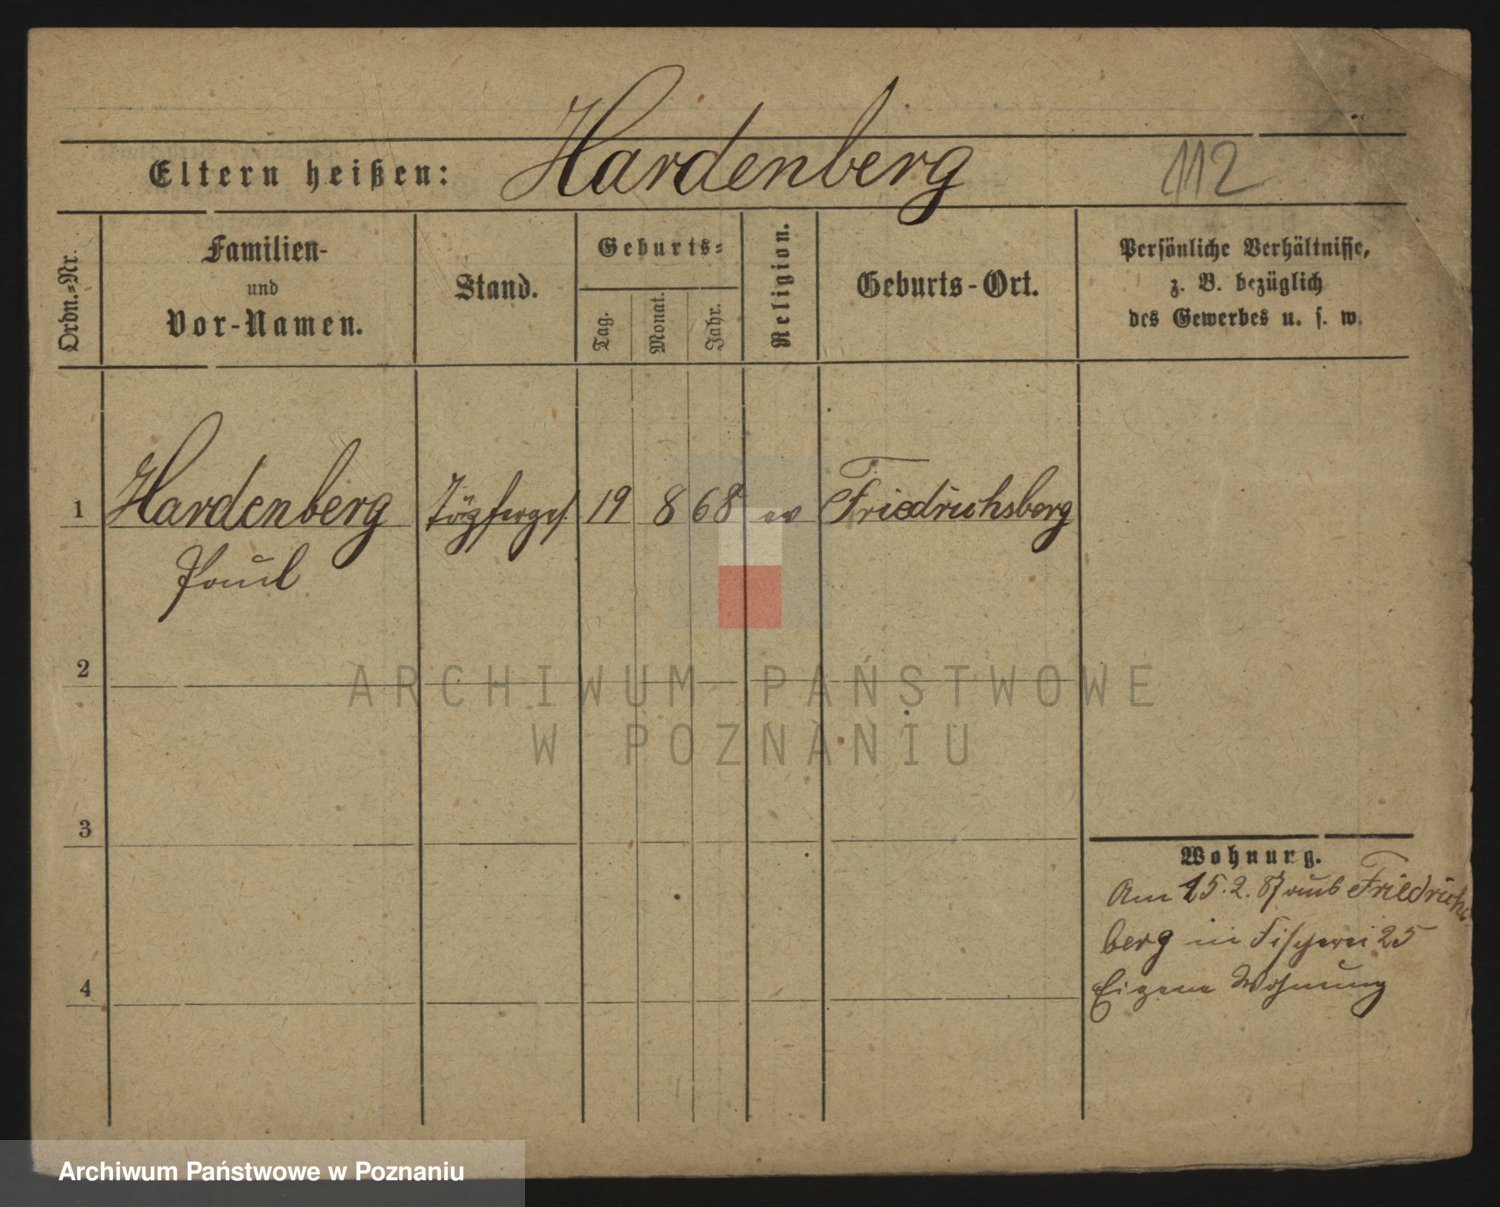 Hardenberg
Eltern heißen:
112
Ordn.-Nr.
Familien-
und
Vor-Namen.
Stand.
Geburts-
Tag.
Monat.
Jahr.
Religion.
Geburts-Ort.
Persönliche Verhältnisse,
z. B. bezüglich
des Gewerbes u. s. w.
1 Hardenberg Töpferges. 19 8 68 ev Friedrichsberg
Paul
2
ARCHIWUM PAŃSTWOWE
W POZNANIU
3
Wohnung.
Am 15.2.87 aus Friedrichs
berg in Fischerei 25
4
Eigene Wohnung
Archiwum Państwowe w Poznaniu